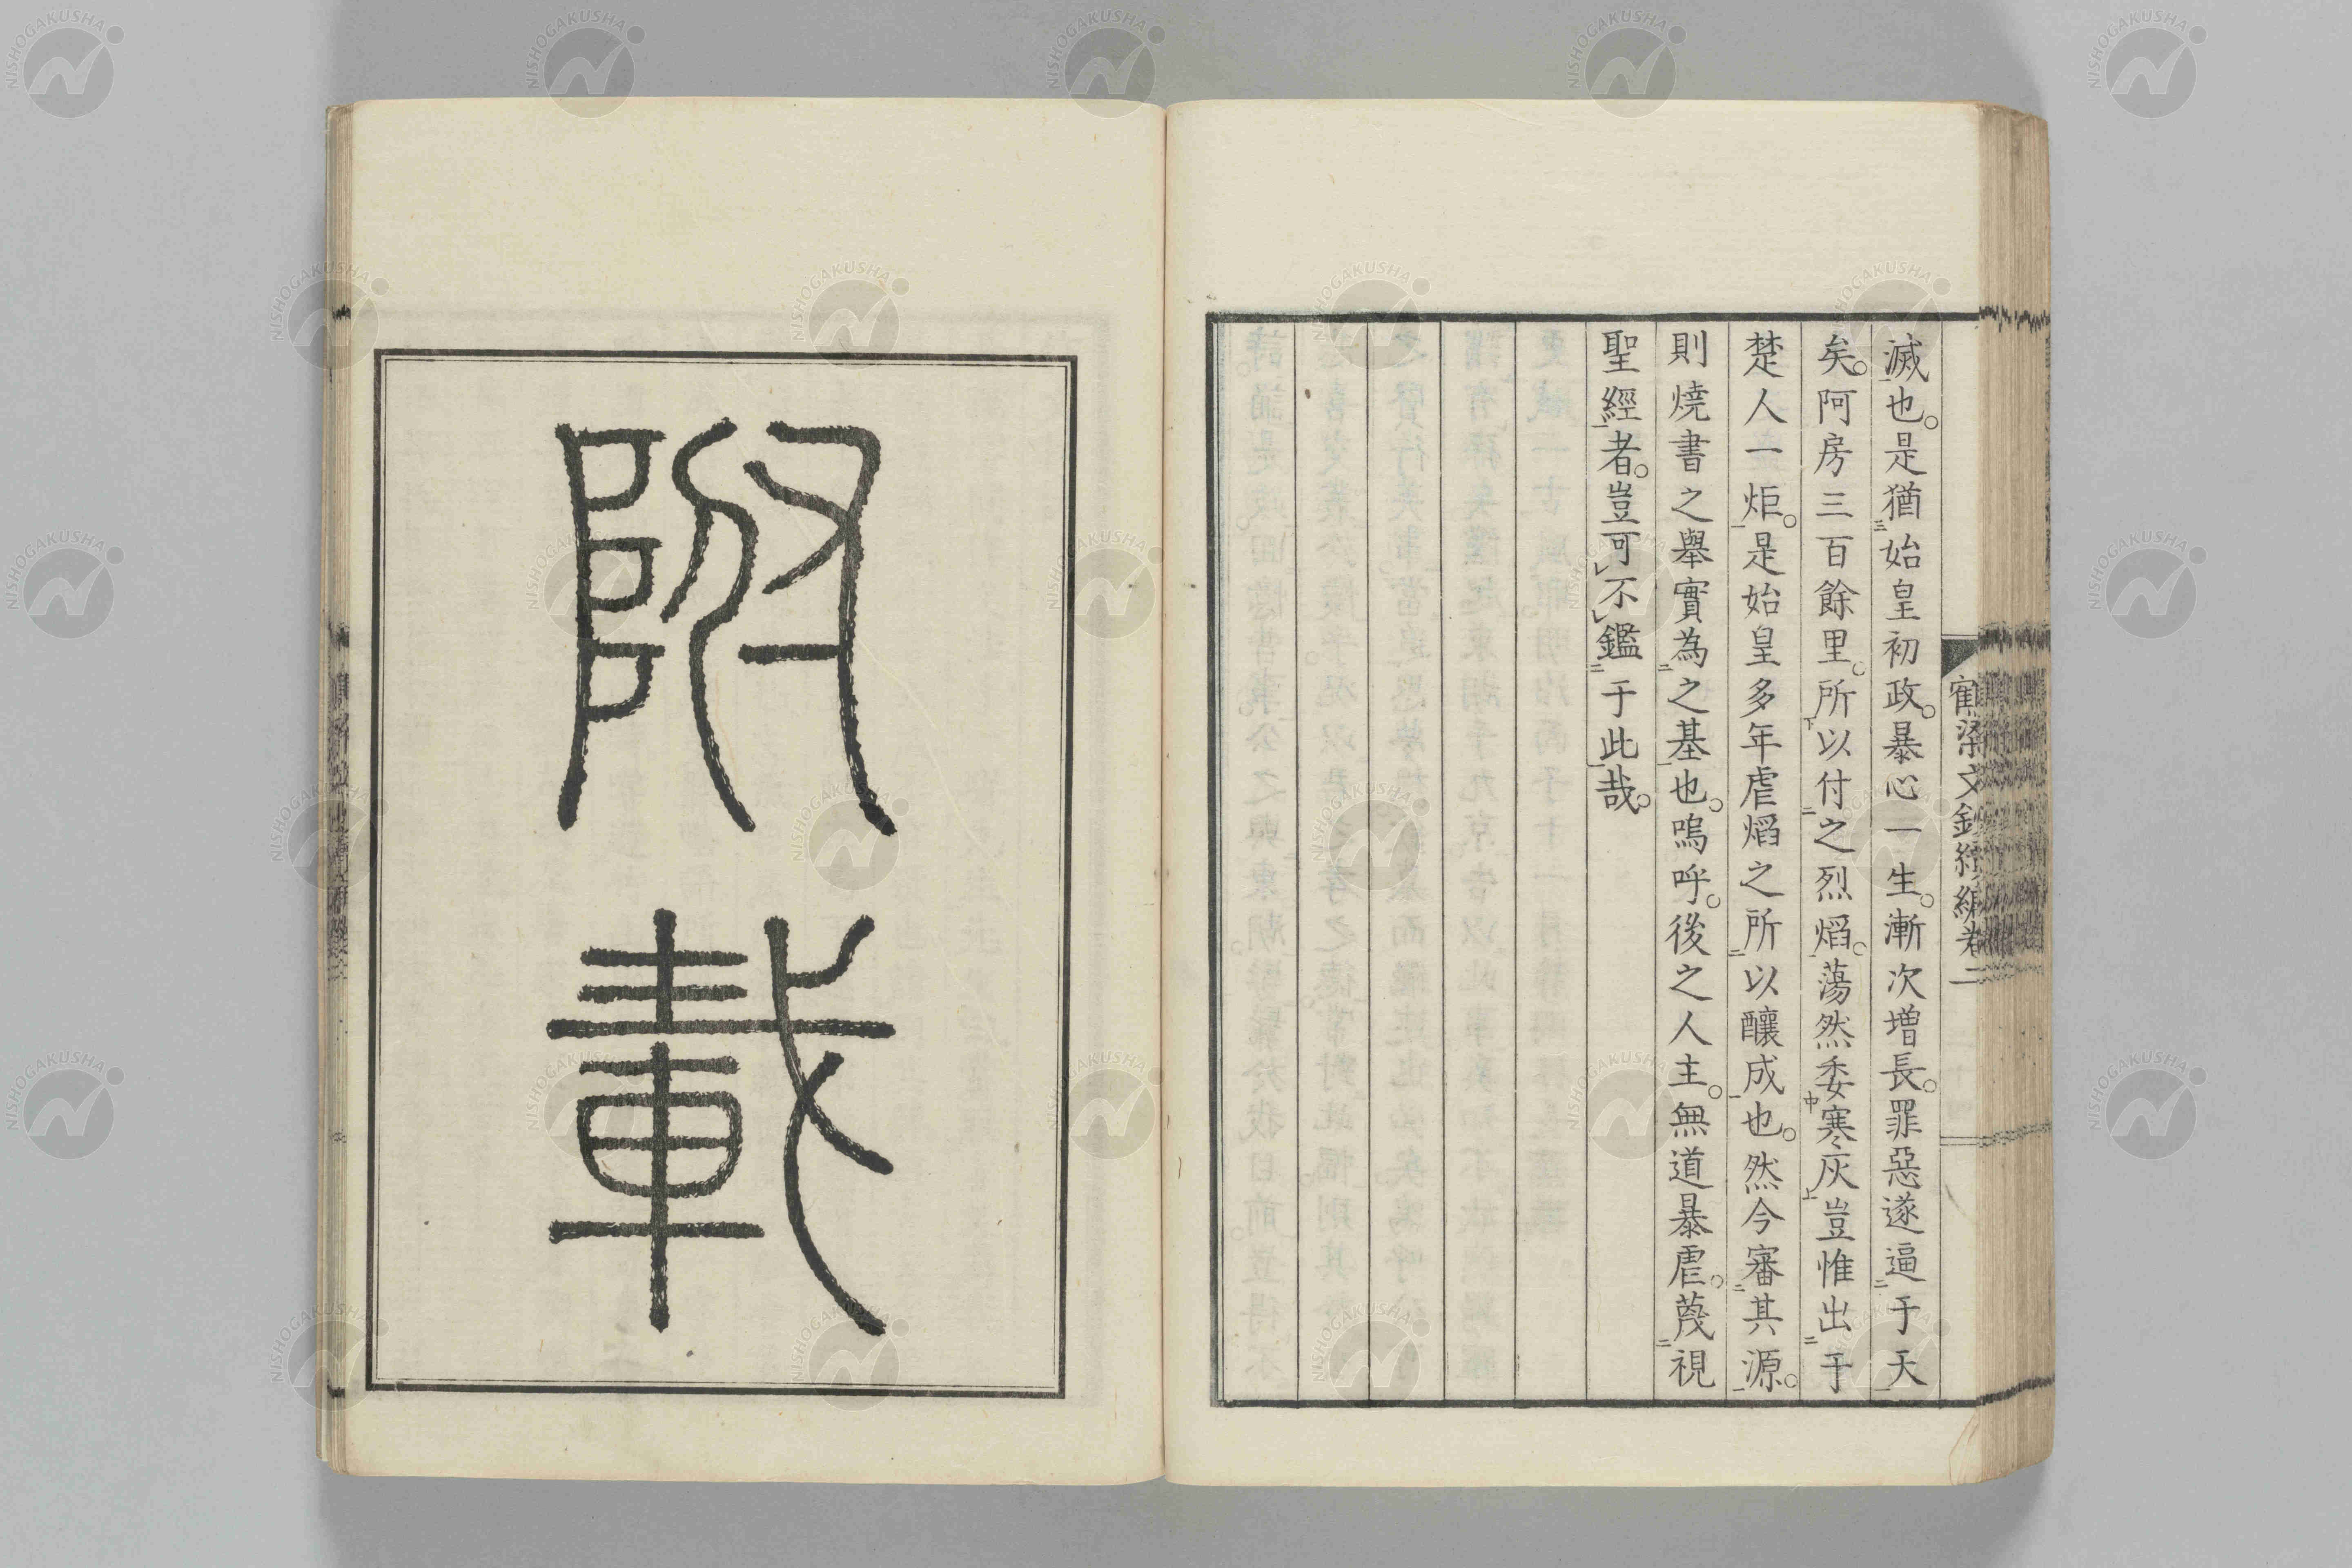 甯梁文鈔續編卷二
滅也。是猶始皇初政。暴心一生。漸次増長。罪惡遂逼于天
矣。阿房三百餘里。所以付之烈熖。蕩然委寒灰。豈惟出于
楚人一炬。是始皇多年虐熖之所以釀成也。然今審其源。
則燒書之舉實為之基也。嗚呼。後之人主。無道暴虐。蔑視
聖經者。豈可不鑑于此哉。
附載
NISHOGAKUSHA